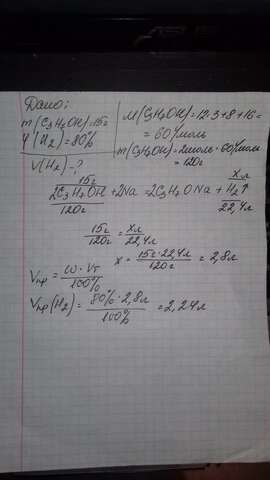 Дано:
m(C₃H₇OH)=15г
φ(H₂)=80%
V(H₂)-?
M(C₃H₇OH)=12·3+8+16=
=60г/моль
m(C₃H₇OH)=2моль·60г/моль
=120г
15г x л
2C₃H₇OH+2Na=2C₃H₇ONa+H₂↑
120г 22,4л
15г/120г = xл/22,4л
x = 15г·22,4л/120г = 2,8л
Vпр = ω·Vт/100%
Vпр(H₂) = 80%·2,8л/100% = 2,24л